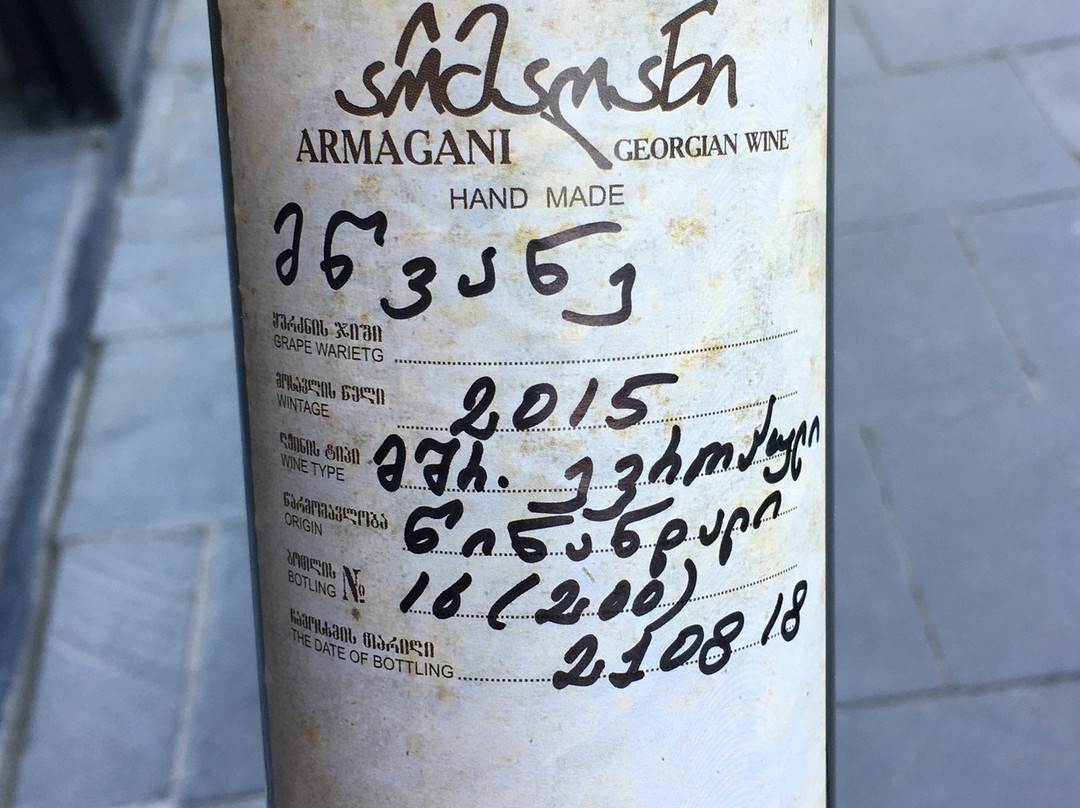 არმაღანი
ARMAGANI GEORGIAN WINE
HAND MADE
მწვანე
ყურძნის ჯიში
GRAPE WARIETG
მოსავლის წელი 2015
WINTAGE
ღვინის ტიპი მშრ. ევროპული
WINE TYPE
წარმომავლობა წინანდალი
ORIGIN
ბოთლის № 16 (200)
BOTLING
ჩამოსხმის თარიღი 210818
THE DATE OF BOTTLING